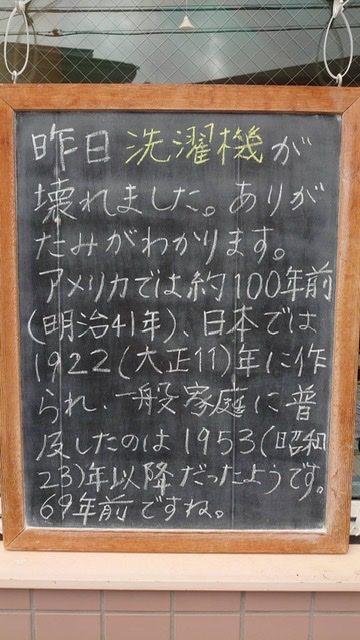 昨日洗濯機が
壊れました。ありが
たみがわかります。
アメリカでは約100年前
(明治41年)、日本では
1922(大正11)年に作
られ、一般家庭に普
及したのは1953(昭和
23)年以降だったようです。
69年前ですね。